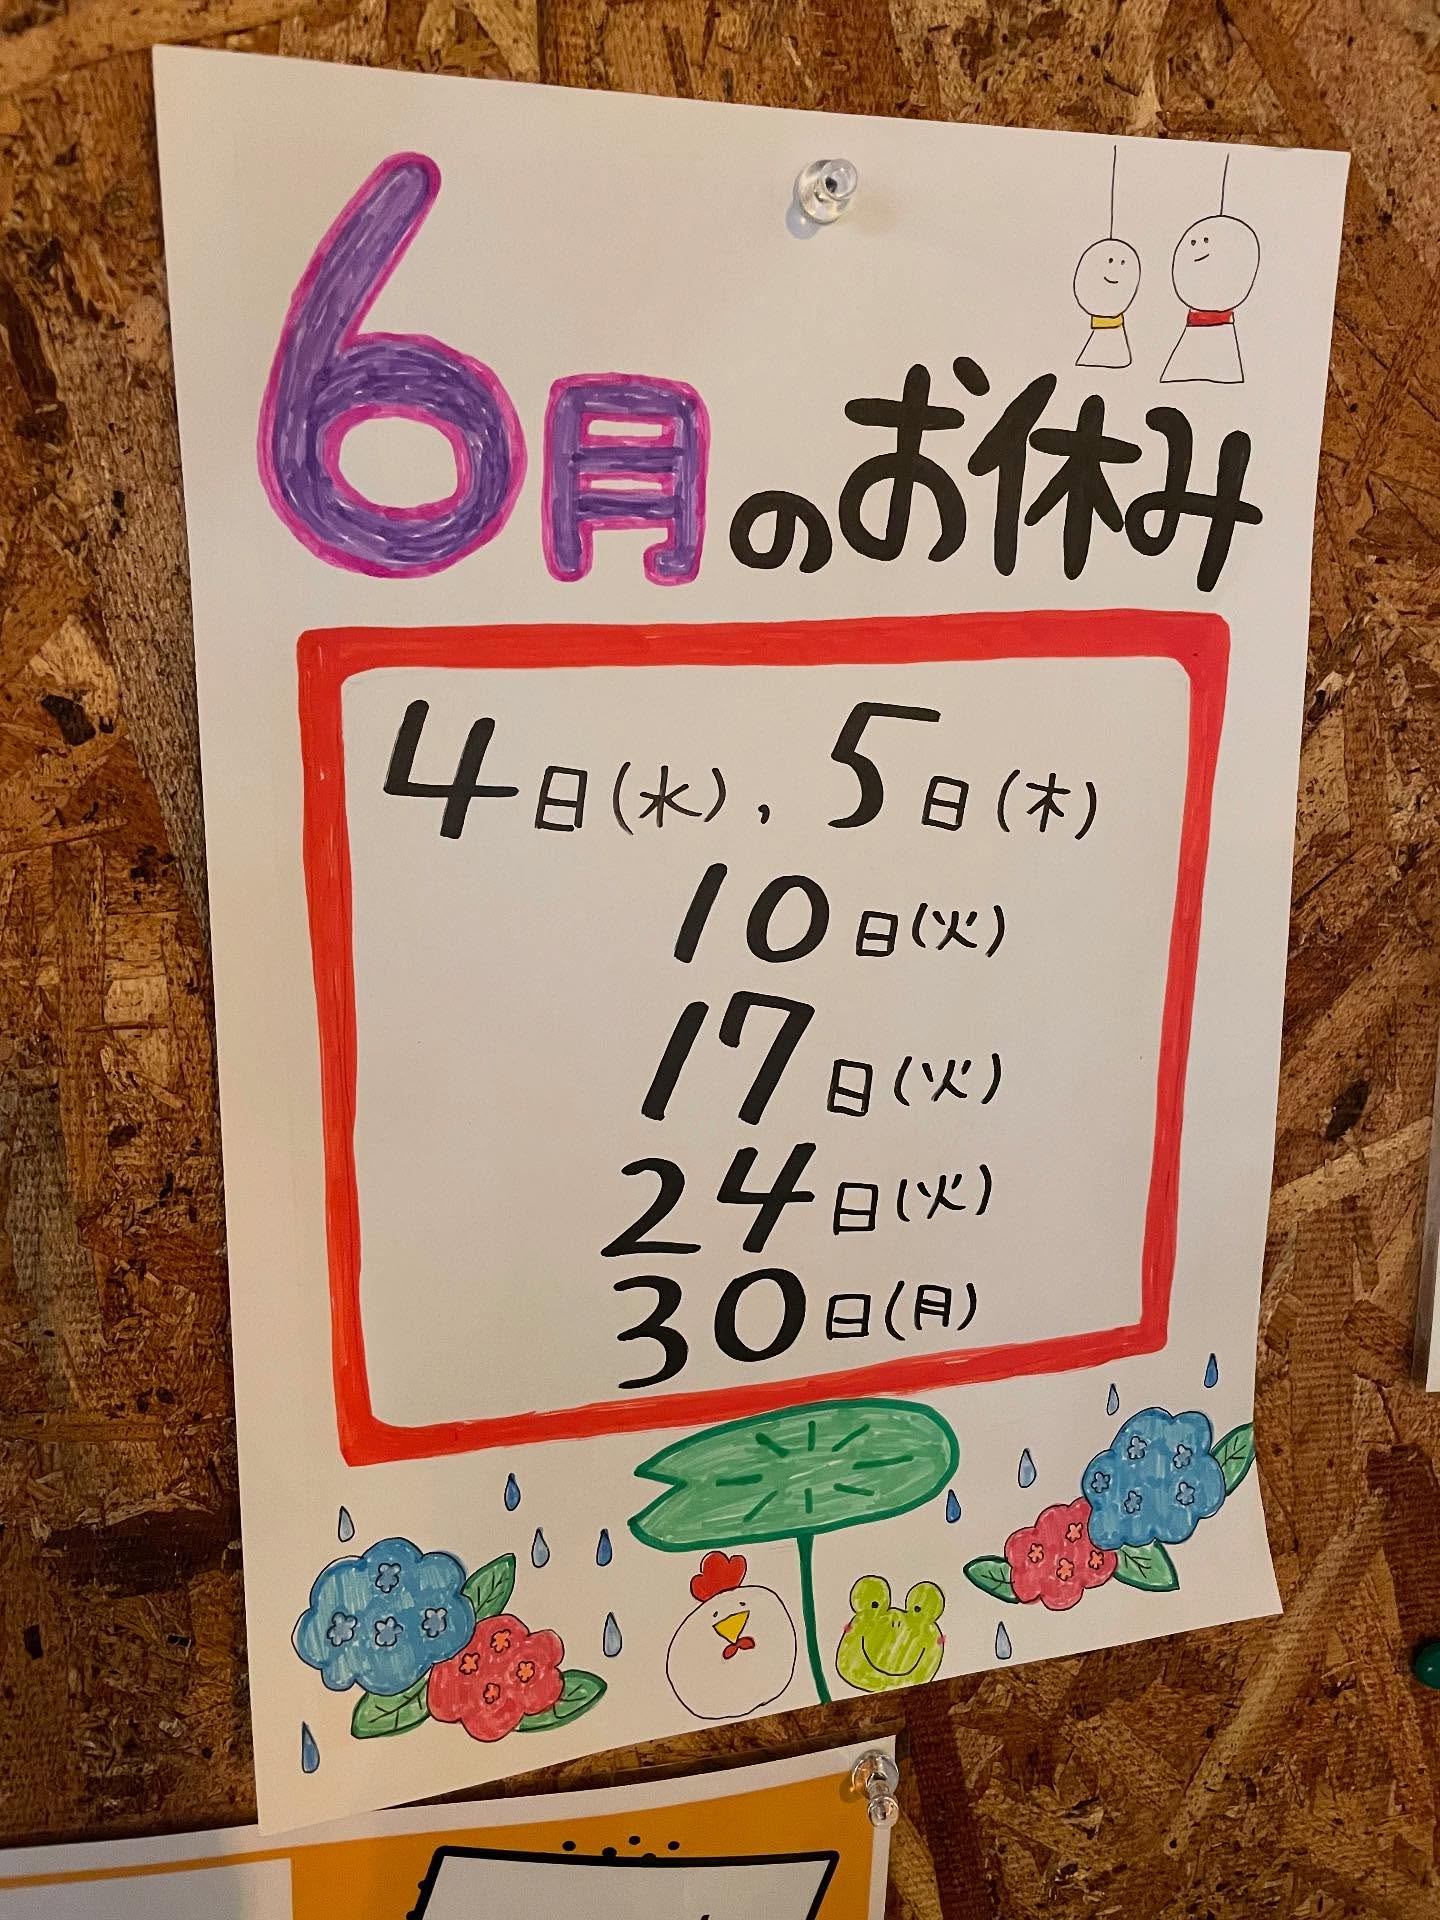 6月のお休み
4日(水),5日(木)
10日(火)
17日(火)
24日(火)
30日(月)